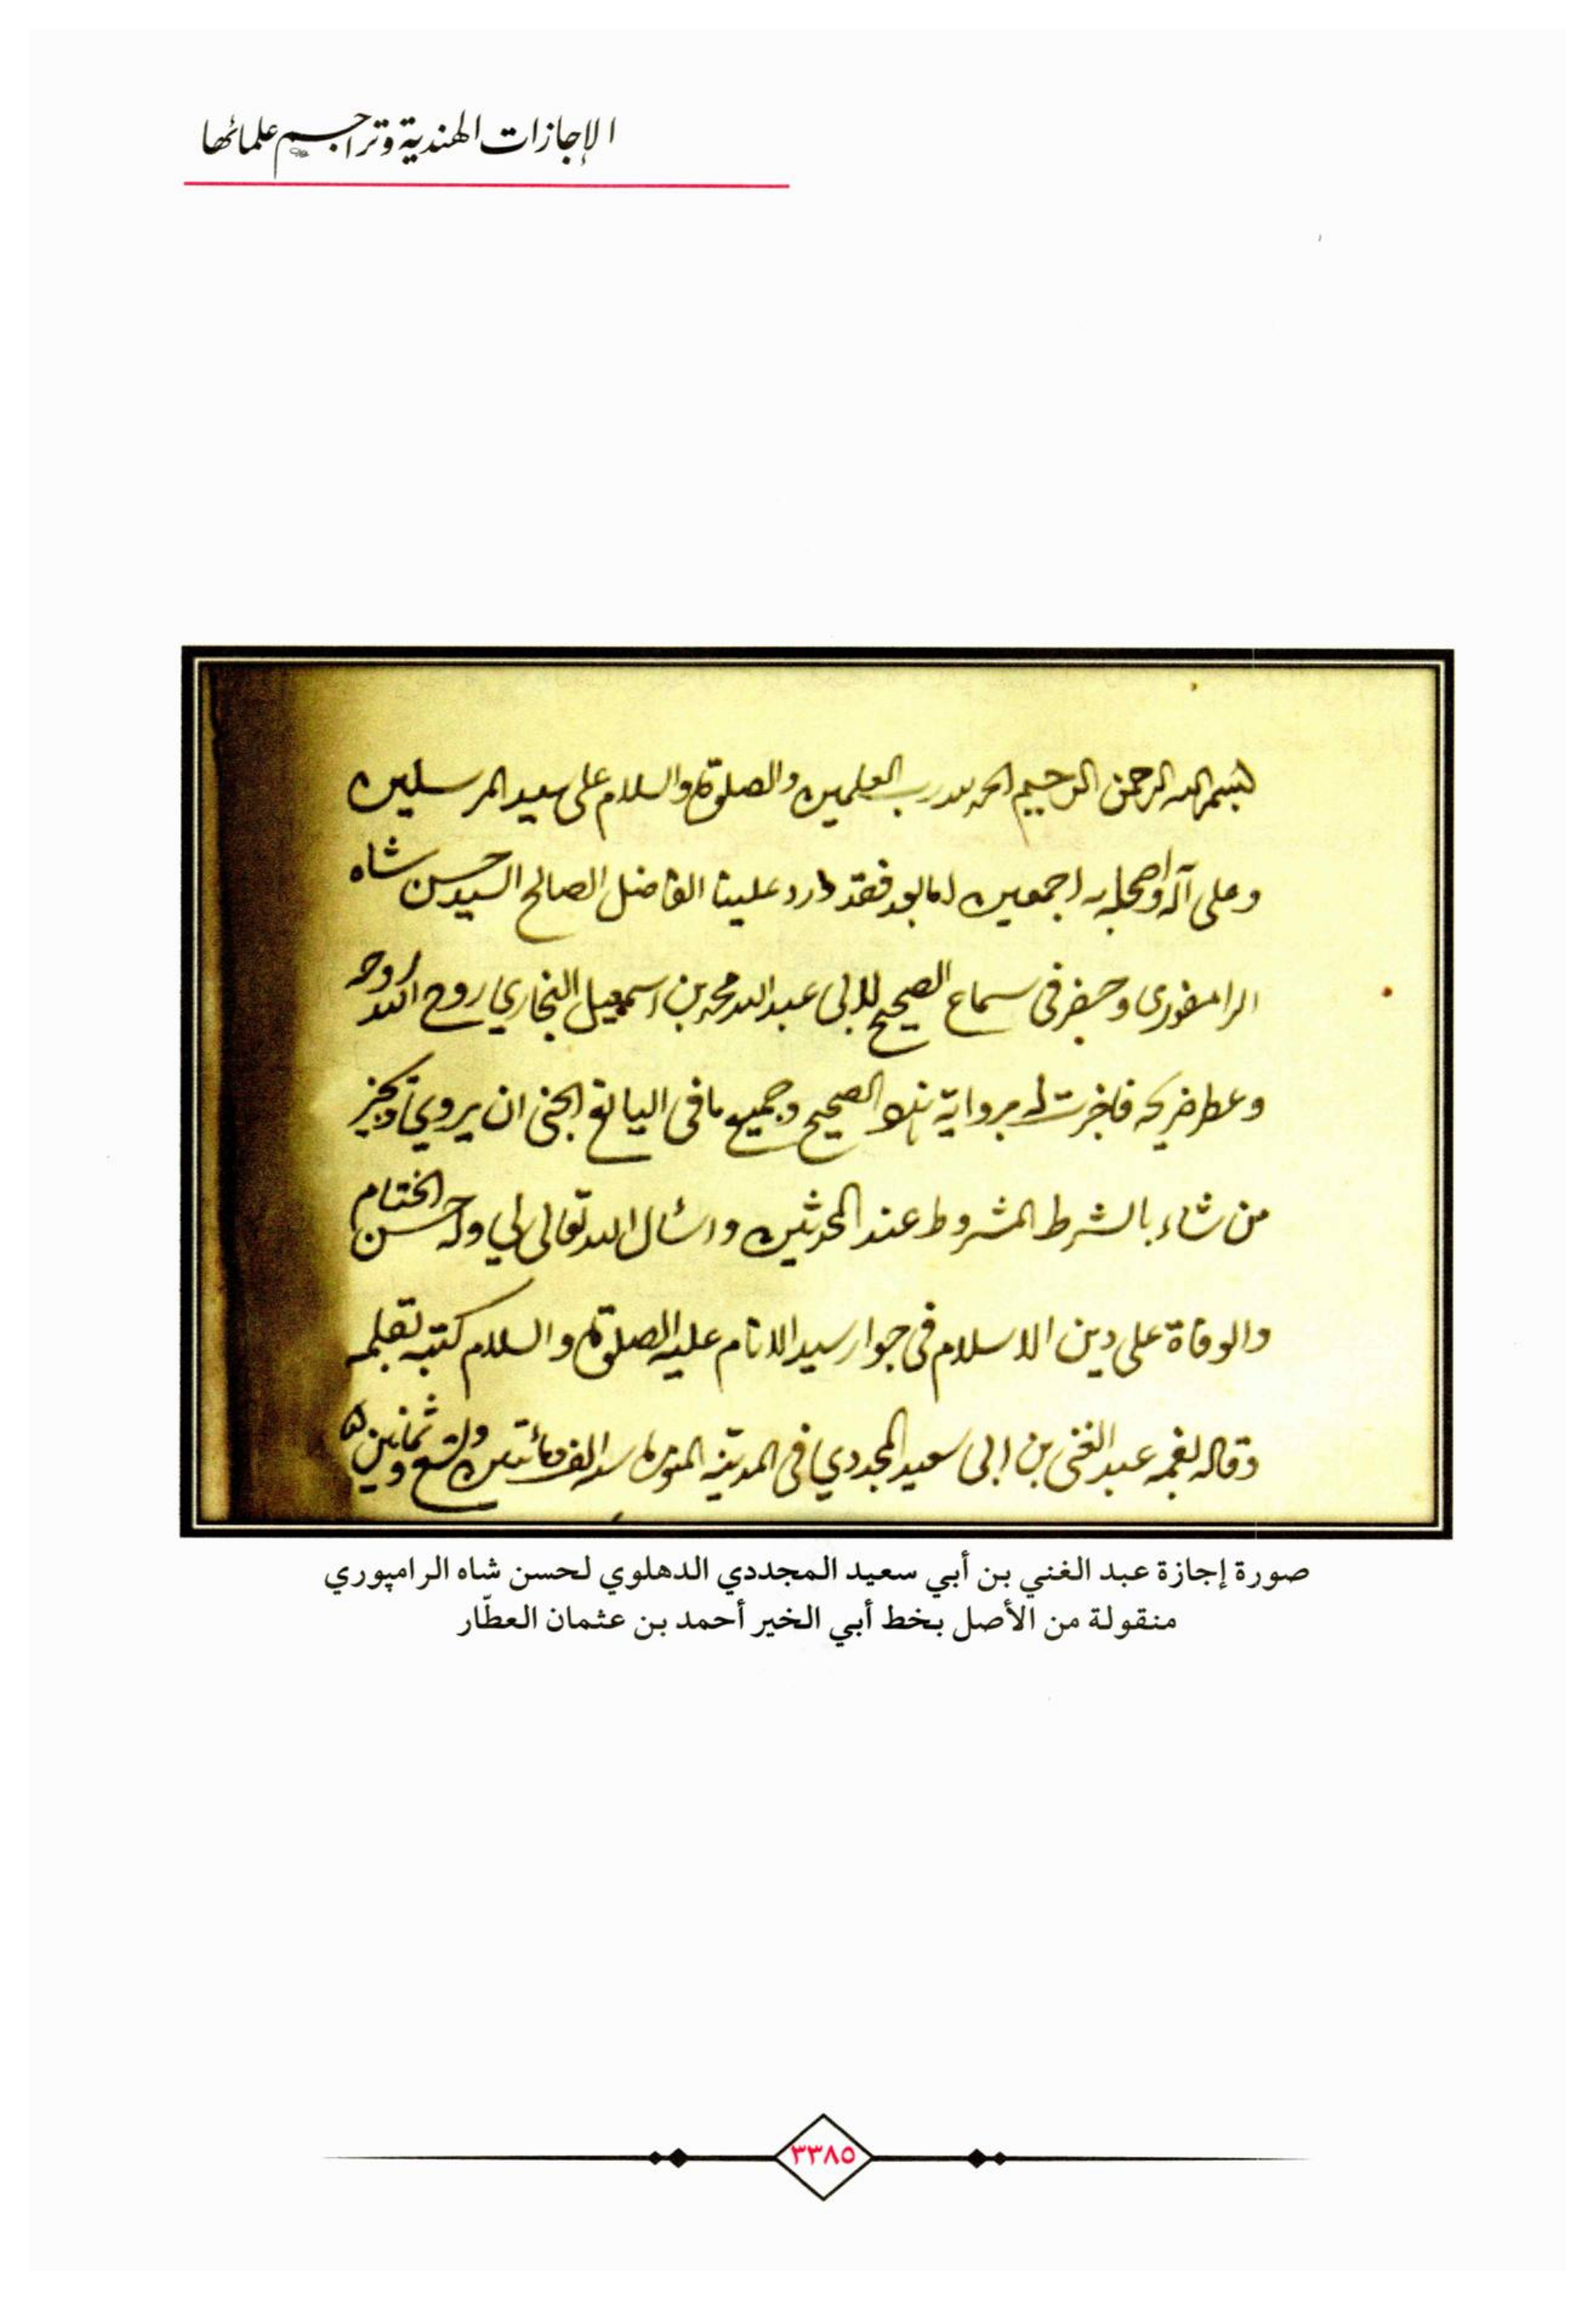 الإجازات الهندية وتراجم علمائها
بسم الله الرحمن الرحيم الحمد لله رب العلمين والصلوة والسلام على سيد المرسلين
وعلى آله واصحابه اجمعين اما بعد فقد ورد علينا الفاضل الصالح السيد حسن شاه
الرامفورى وحضر فى سماع الصحيح للابى عبد الله محمد بن اسمعيل البخاري روح الله روحه
وعطر ضريحه فاجزت له برواية الصحيح وجميع ما فى اليانع الجنى ان يروي ويجيز
من شاء بالشرط المشروط عند المحدثين واسال الله تعالى لي وله حسن الختام
والوفاة على دين الاسلام فى جوار سيد الانام عليه الصلوة والسلام كتبه بقلمه
وقاله بفمه عبد الغنى بن ابى سعيد المجددي فى المدينة المنورة سنه الف ومائتين وتسع وثمانين
صورة إجازة عبد الغني بن أبي سعيد المجددي الدهلوي لحسن شاه الرامپوري
منقولة من الأصل بخط أبي الخير أحمد بن عثمان العطّار
٣٣٨٥